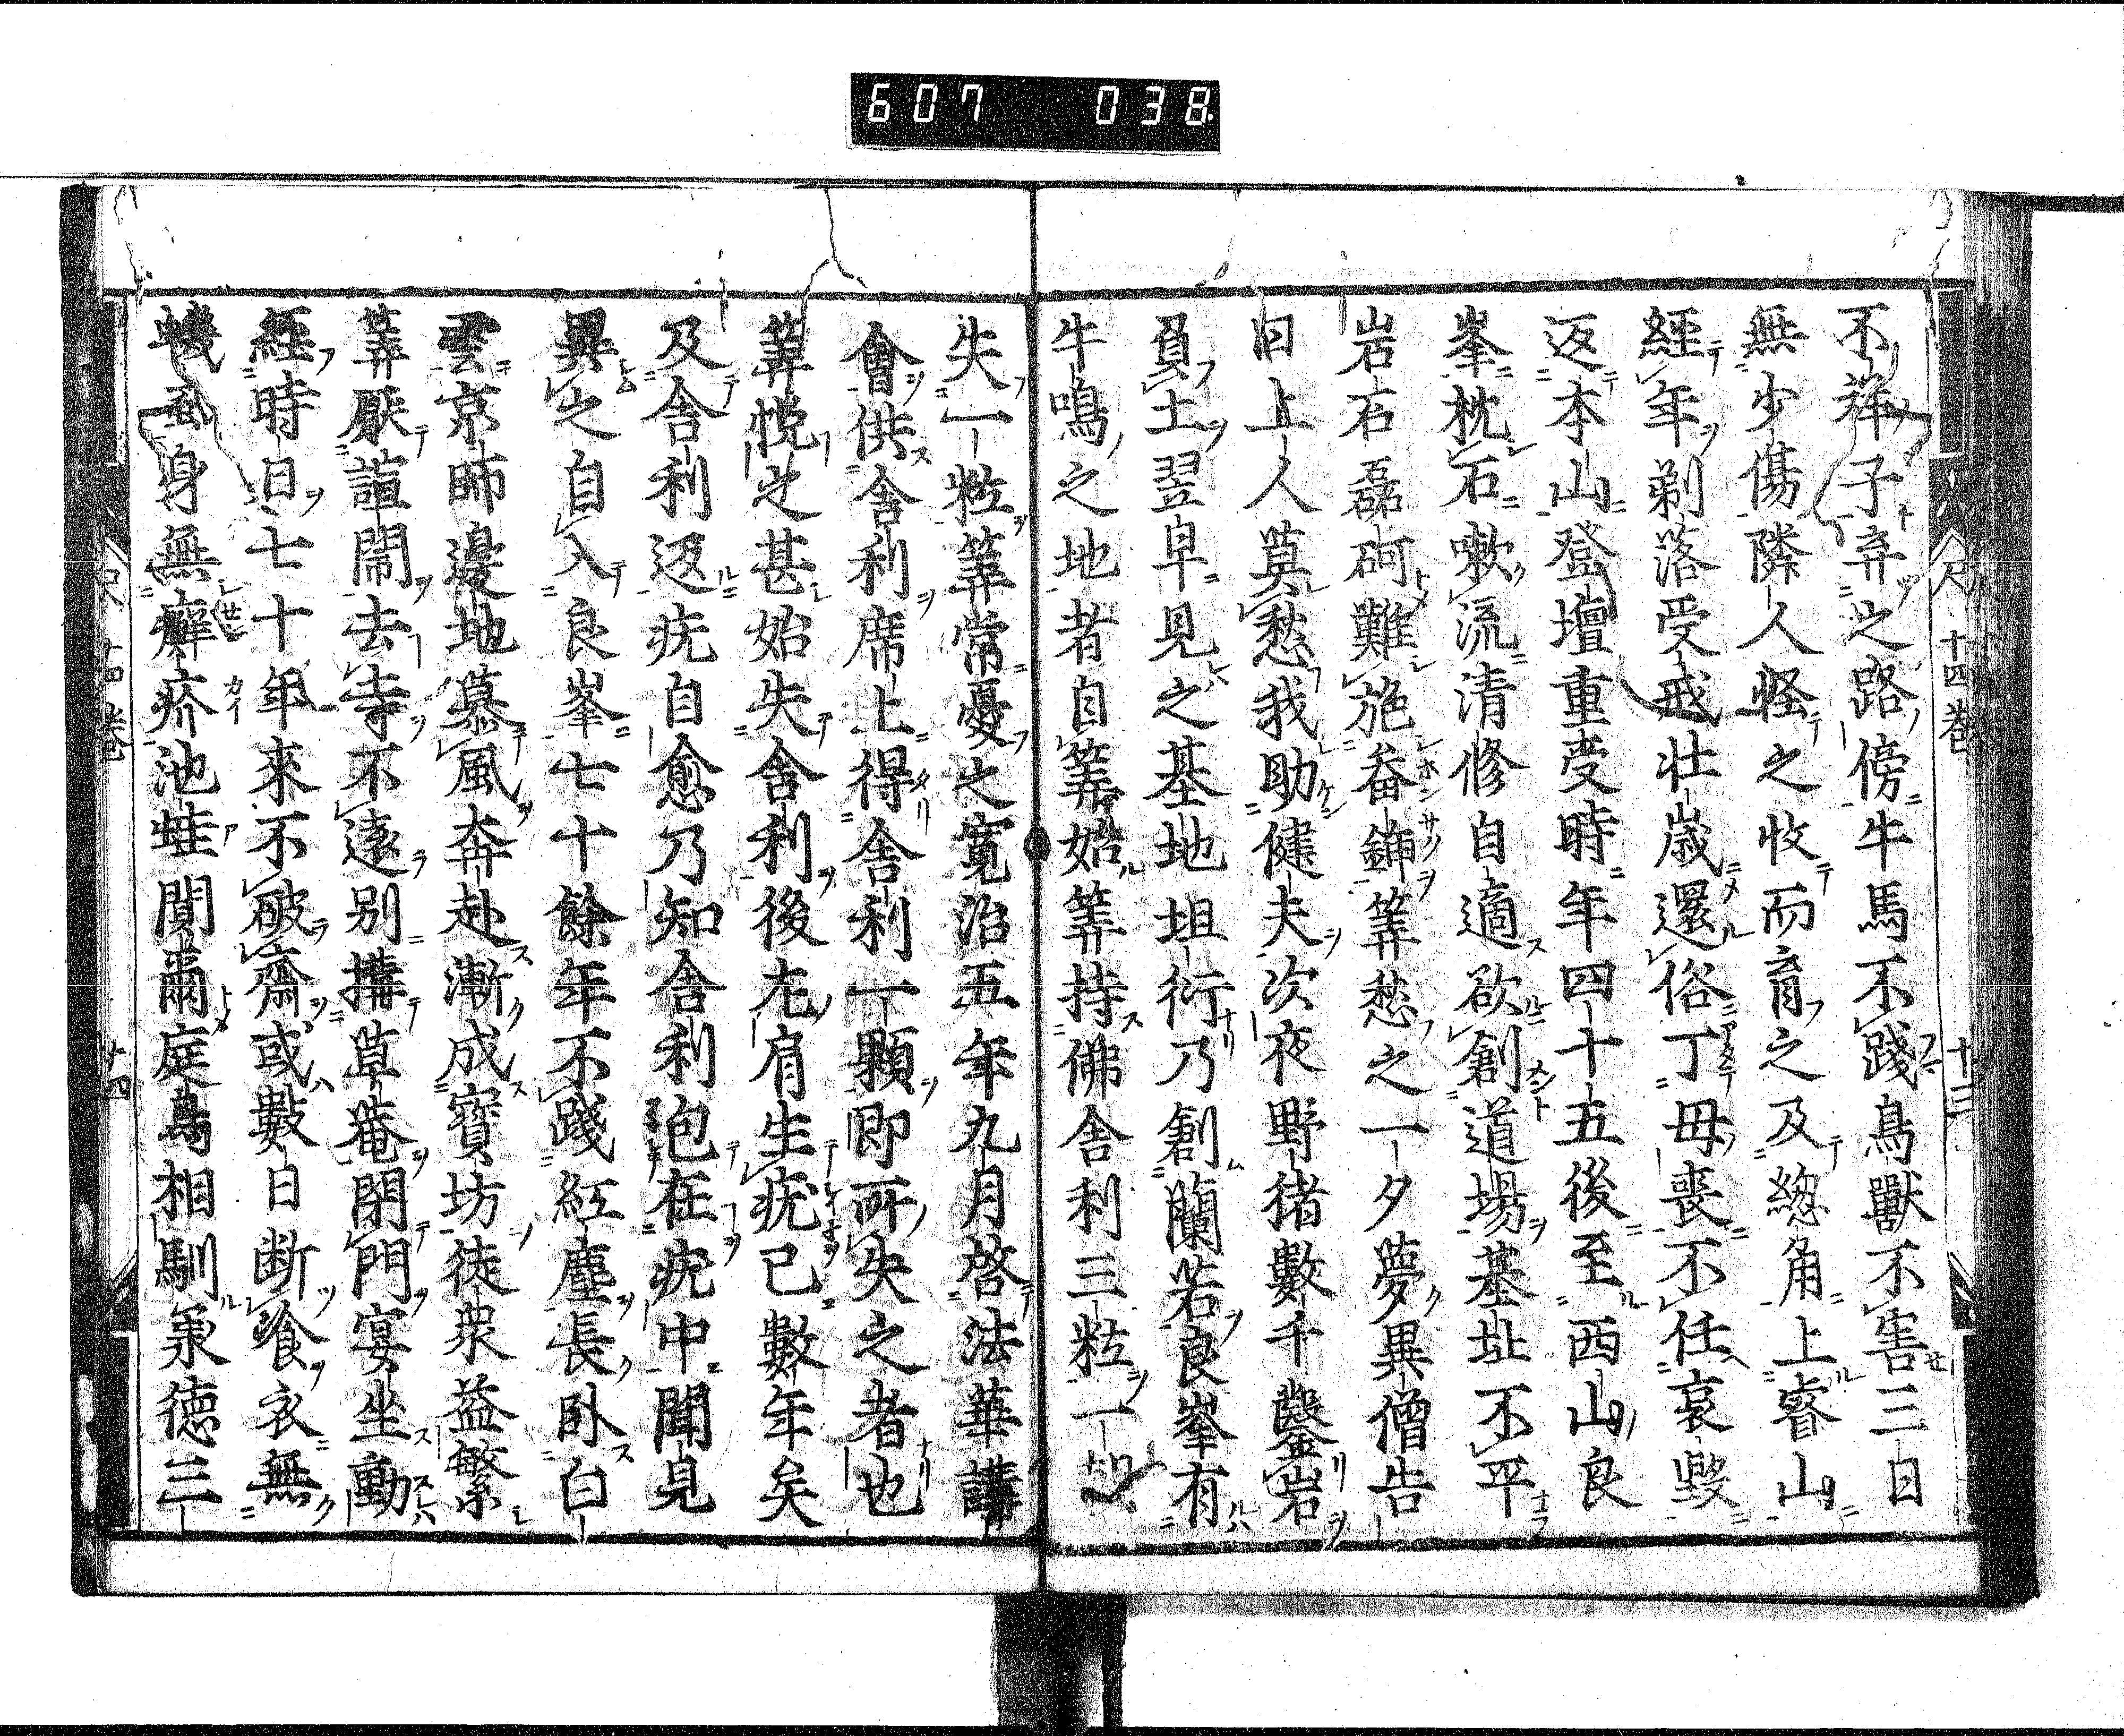 607 038
不祥子弃之路傍牛馬不踐鳥獸不害三日
無少傷隣人怪之收而育之及總角上睿山
經年剃落受戒壮歳還俗丁母喪不任哀毀
返本山登壇重受時年四十五後至西山良
峯枕石嗽流清修自適欲創道場基址不平
岩石磊砢難施畚鍤筭愁之一夕夢異僧告
曰上人莫愁我助健夫次夜野猪數千鑿岩
負土翌早見之基地坦衍乃創蘭若良峯有
牛鳴之地者自筭始筭持佛舎利三粒一
失一粒筭常憂之寛治五年九月啓法華講
會供舎利席上得舎利一顆即所失之者也
筭悦之甚始失舎利後尤肩生疣已數年矣
及舎利返疣自愈乃知舎利疱在疣中聞見
異之自入良峯七十餘年不踐紅塵長卧白
雲京師邊地慕風奔赴漸成寳坊徒衆益繁
筭厭諠閙去寺不遠別搆草菴閉門宴坐動
經時日七十年來不破齋或數日断飡衣無
蟣虱身無癬疥池蛙聞爾庭鳥相馴衆徳三
尺 十四巻 十三
十四巻 十四